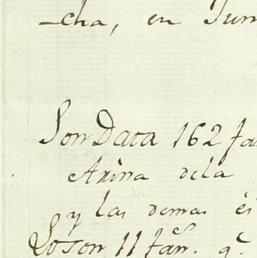 cha, en Jun
Son Data 162 fan
Arina dela
y las demas es
Lo son 11 fan.s q.e